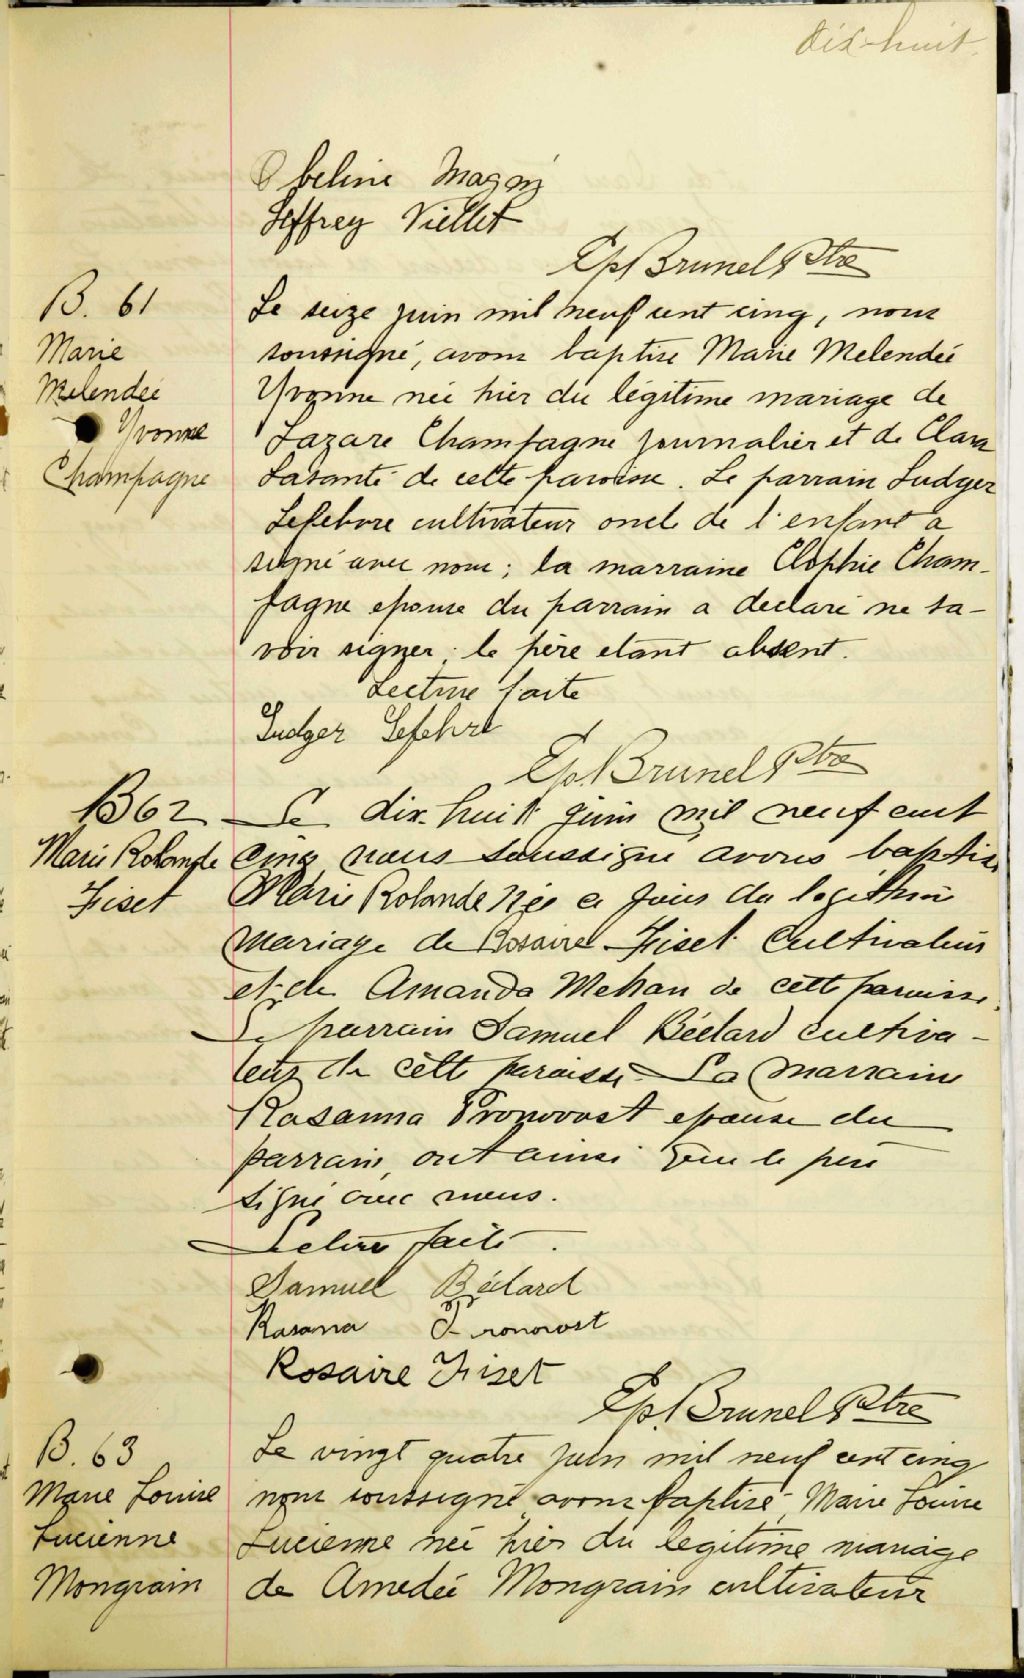 dix-huit.
Obeline Magny
Jeffrey Viellet
Ep. Brunel Ptre
B. 61
Marie
Melendée
Yvonne
Champagne
Le seize juin mil neuf cent cinq, nous
soussigné, avons baptisé Marie Melendée
Yvonne née hier du légitime mariage de
Lazare Champagne journalier et de Clara
Lasanté de cette paroisse. Le parrain Ludger
Lefebvre cultivateur oncle de l'enfant a
signé avec nous; la marraine Clophie Cham-
pagne epouse du parrain a declaré ne sa-
voir signer; le père etant absent.
Lecture faite
Ludger Lefebvre
Ep. Brunel Ptre
B 62
Marie Rolande
Fiset
Le dix-huit juin mil neuf cent
cinq nous soussigné avons baptisé
Marie Rolande née ce jour du legitime
mariage de Rosaire Fiset cultivateur
et de Amanda Mehan de cette paroisse.
Le parrain Samuel Bédard cultiva-
teur de cette paroisse. La marraine
Rosanna Pronovost epouse du
parrain, ont ainsi que le père
signé avec nous.
Lecture faite.
Samuel Bédard
Rosana Pronovost
Rosaire Fiset
Ep. Brunel Ptre
B. 63
Marie Louise
Lucienne
Mongrain
Le vingt quatre juin mil neuf cent cinq
nous soussigné avons baptisé, Marie Louise
Lucienne née hier du legitime mariage
de Amedée Mongrain cultivateur